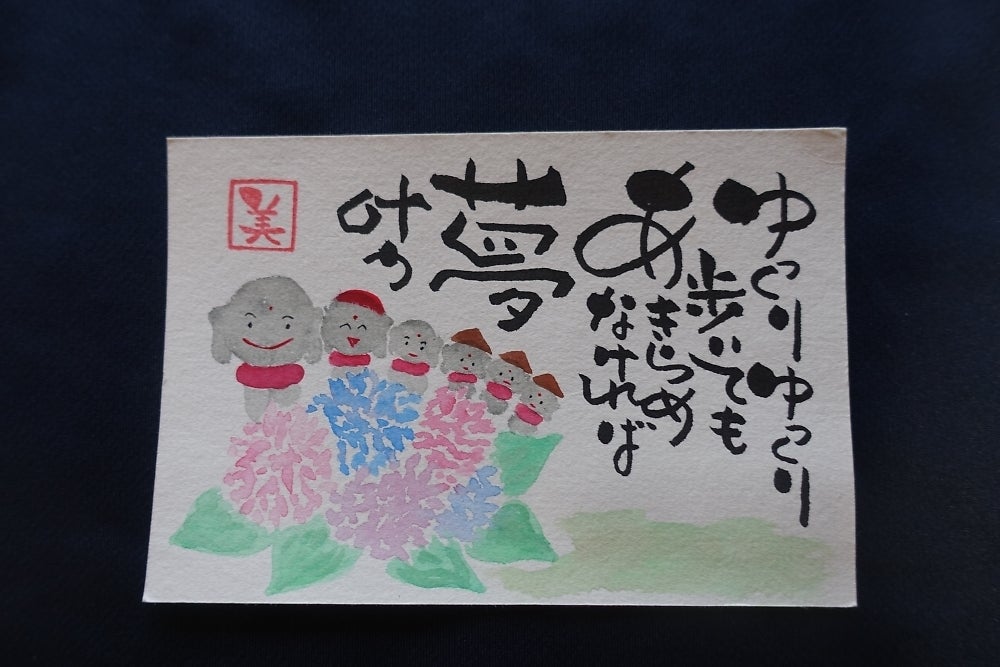 ゆっくりゆっくり
歩いても
あきらめ
なければ
夢
叶う
美